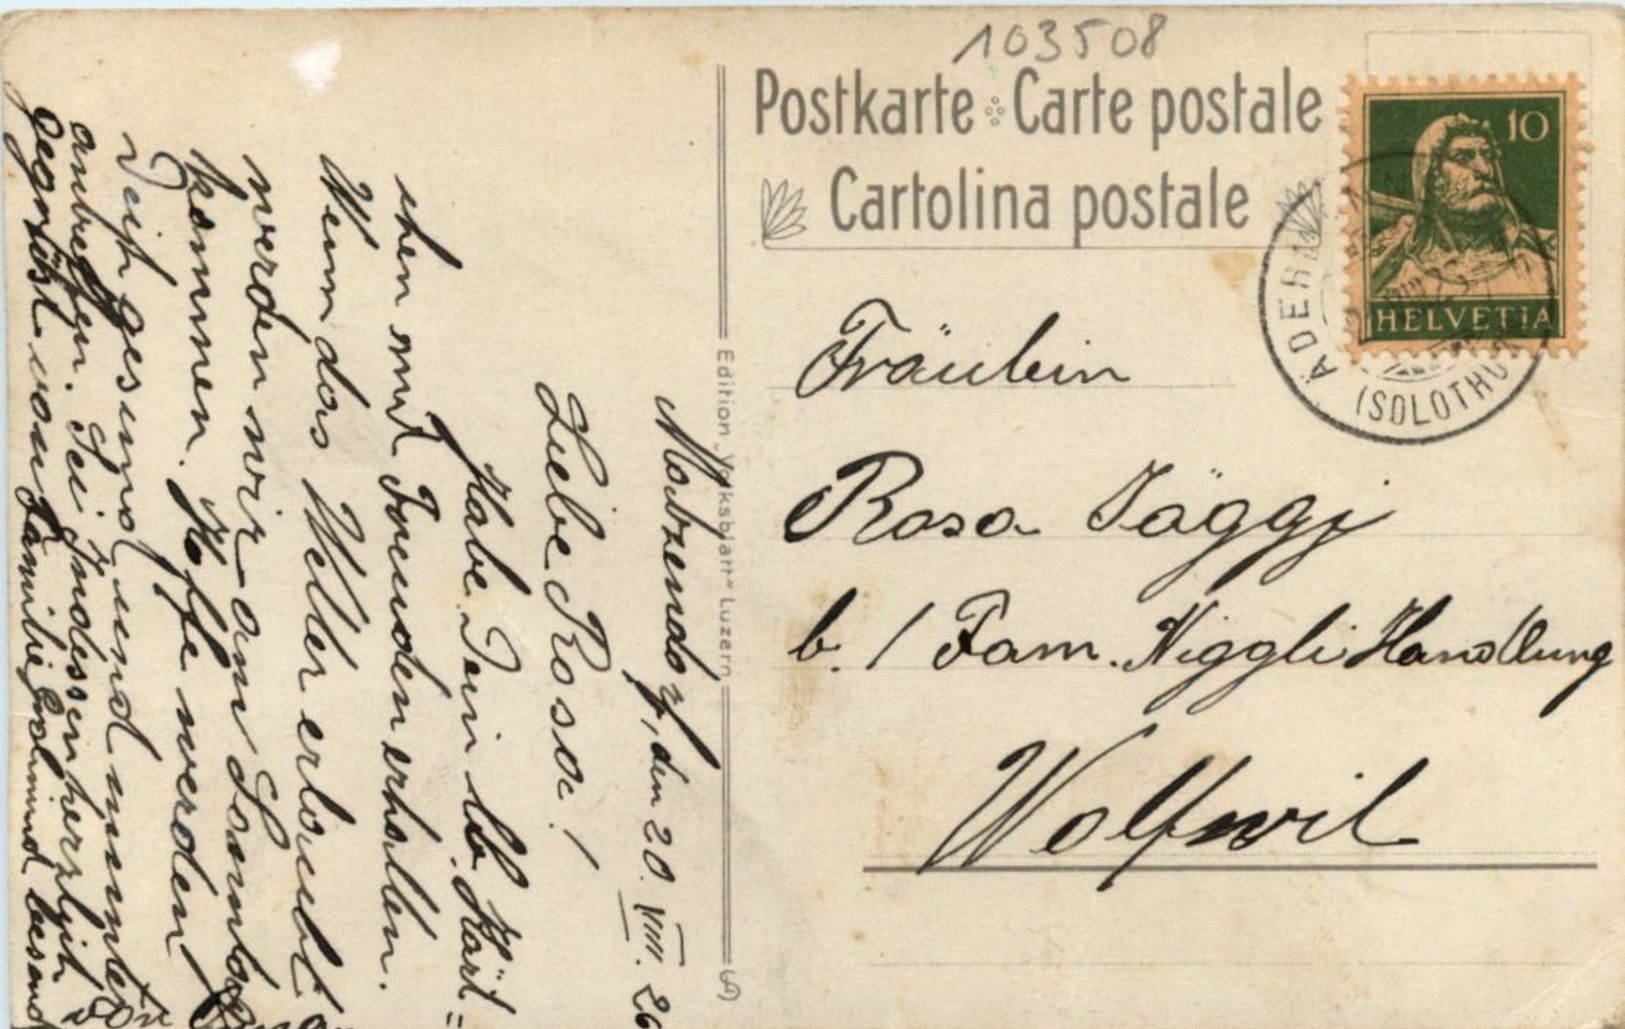 103508
Postkarte Carte postale
Cartolina postale
10
HELVETIA
ÄDER
(SOLOTHU
Fräulein
Rosa Jäggi
b. / Fam. Niggli Handlung
Wolfwil
Edition „Volksblatt" Luzern
den 20. VIII. 26
Liebe Rosa!
Habe Dein lb. Kärt=
chen mit Freuden erhalten.
Wenn das Wetter erlaubt
werden wir am Sonntag
kommen. Hoffe werden
Dich gesund und munter
antreffen. Sei indessen herzlich
gegrüsst von Familie